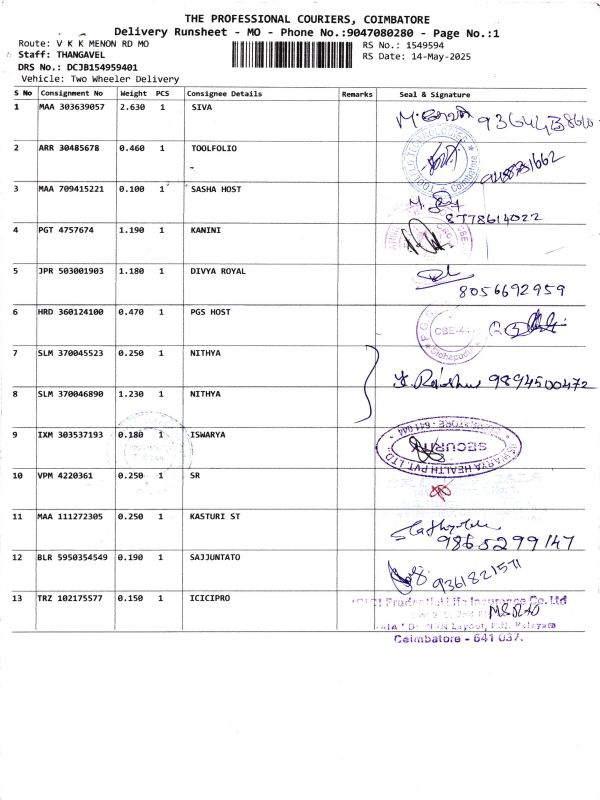 THE PROFESSIONAL COURIERS, COIMBATORE
Delivery Runsheet - MO - Phone No.:9047080280 - Page No.:1
Route: V K K MENON RD MO
RS No.: 1549594
Staff: THANGAVEL
RS Date: 14-May-2025
DRS No.: DCJB154959401
Vehicle: Two Wheeler Delivery
S No Consignment No Weight PCS Consignee Details Remarks Seal & Signature
1 MAA 303639057 2.630 1 SIVA
2 ARR 30485678 0.460 1 TOOLFOLIO
Coimbatore
3 MAA 709415221 0.100 1 SASHA HOST
8778614022
4 PGT 4757674 1.190 1 KANINI
5 JPR 503001903 1.180 1 DIVYA ROYAL
8056692959
6 HRD 360124100 0.470 1 PGS HOST
7 SLM 370045523 0.250 1 NITHYA
9894500472
8 SLM 370046890 1.230 1 NITHYA
9 IXM 303537193 0.180 1 ISWARYA
ISWARYA HEALTH PVT. LTD.
SECURITY
COIMBATORE - 641 044
10 VPM 4220361 0.250 1 SR
11 MAA 111272305 0.250 1 KASTURI ST
9865299147
12 BLR 5950354549 0.190 1 SAJJUNTATO
13 TRZ 102175577 0.150 1 ICICIPRO
ICICI Prudential Life Insurance Co. Ltd
Coimbatore - 641 037.